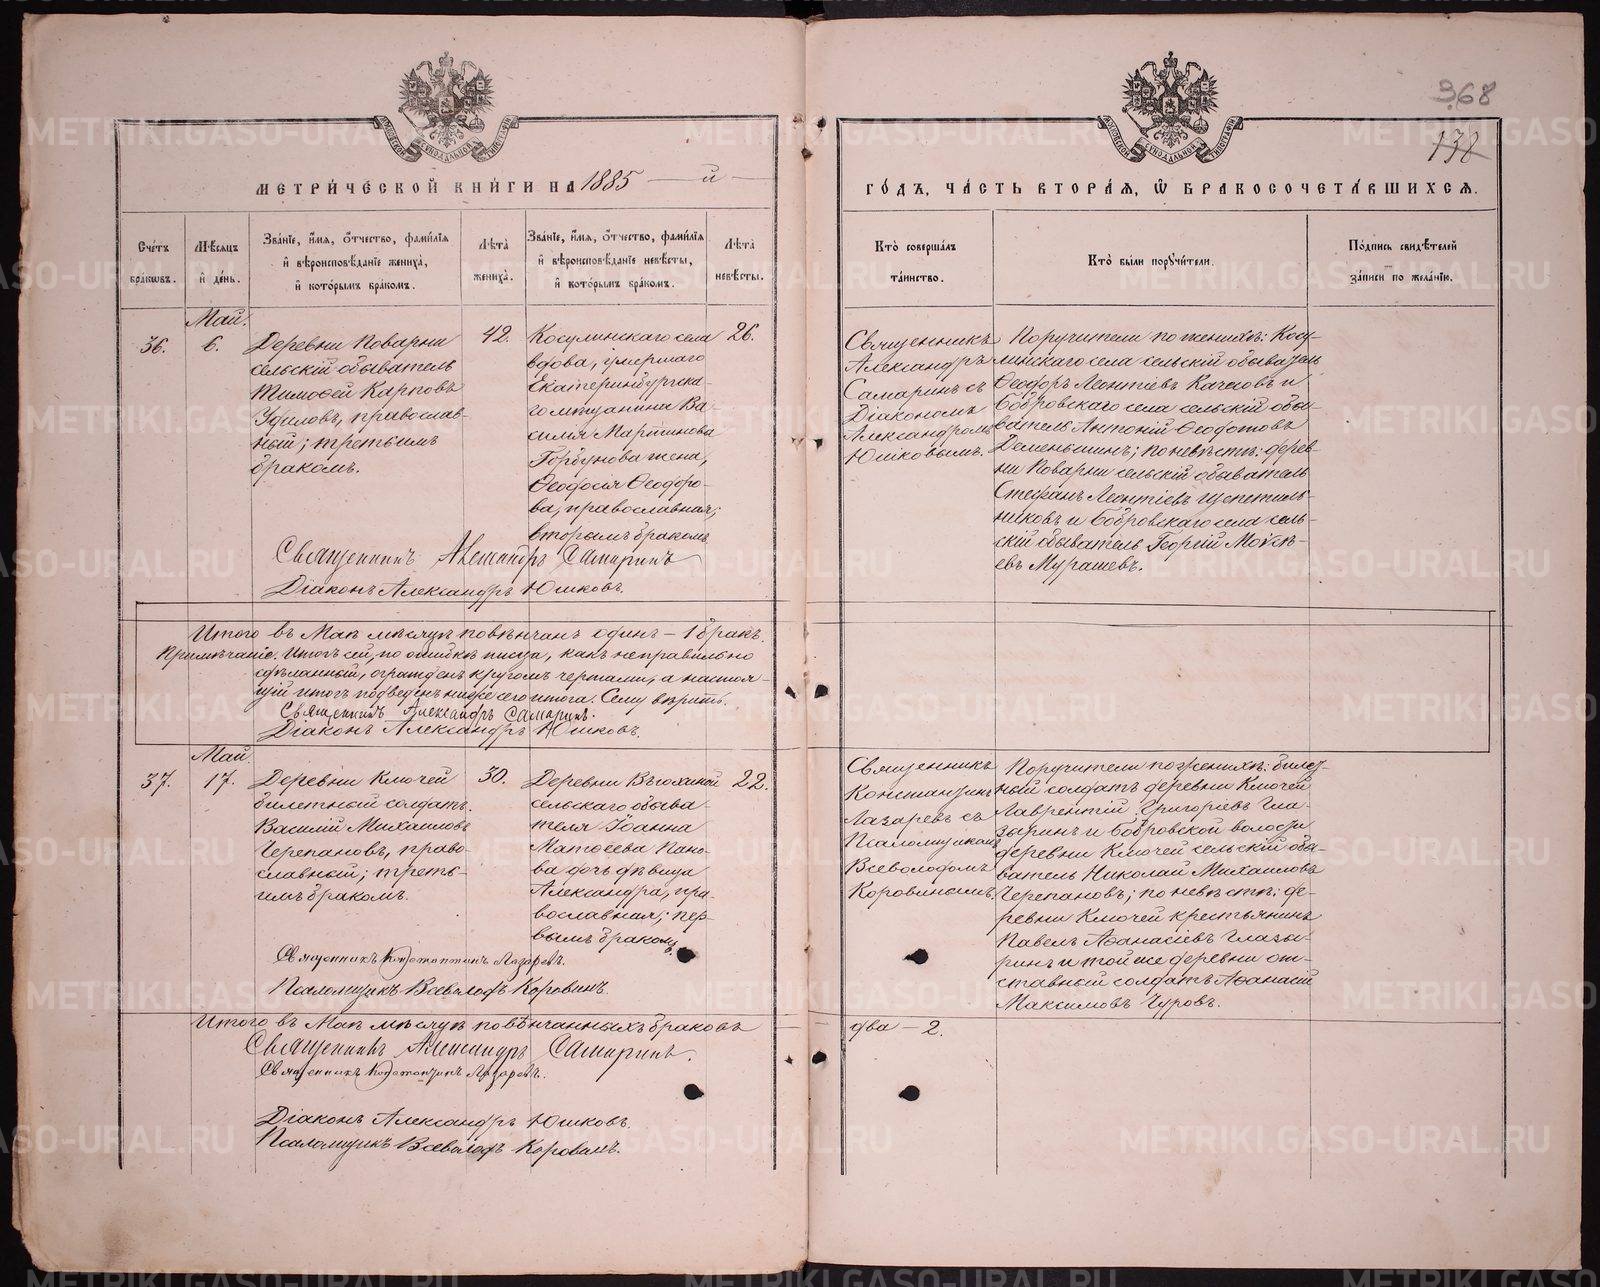 968
138
МЕТРИ́ЧЕСКОЙ КНИ́ГИ НА 1885 — й —
ГО́ДЪ, ЧА́СТЬ ВТОРА́Я, Ѽ БРАКОСОЧЕТА́ВШИХСЯ.
Сче́тъ бра́кѡвъ.
Мѣ́сяцъ и҆ де́нь.
Зва́нїе, и҆́мя, ѻ҆́тчество, фами́лїя и҆ вѣроисповѣ́данїе жениха̀, и҆ кото́рымъ бра́комъ.
Лѣ́та жениха̀.
Зва́нїе, и҆́мя, ѻ҆́тчество, фами́лїя и҆ вѣроисповѣ́данїе невѣ́сты, и҆ кото́рымъ бра́комъ.
Лѣ́та невѣ́сты.
Кто̀ соверша́лъ та́инство.
Кто̀ бы́ли порꙋчи́тели.
По́дпись свидѣ́телей за́писи по жела́нїю.
Май.
36.
6.
Деревни Поварни
сельскій обыватель
Тимоѳей Карповъ
Уфиловъ, православ-
ный; третьимъ
бракомъ.
42.
Косулинскаго села
вдова, умершаго
Екатеринбургска-
го мѣщанина Ва-
силія Мартинова
Горбунова жена,
Ѳеодосья Ѳеодоро-
ва, православная;
вторымъ бракомъ.
26.
Священникъ
Александръ
Самаринъ съ
Діакономъ
Александромъ
Юшковымъ.
Поручители по женихѣ: Косу-
линскаго села сельскій обыватель
Ѳеодоръ Леонтіевъ Качесовъ и
Бобровскаго села сельскій обы-
ватель Антоній Ѳеодотовъ
Деменьшинъ; по невѣстѣ: дерев-
ни Поварни сельскій обыватель
Стефанъ Леонтіевъ Щепетиль-
никовъ и Бобровскаго села сель-
скій обыватель Георгій Моѵсѣ-
евъ Мурашевъ.
Священникъ Александръ Самаринъ
Діаконъ Александръ Юшковъ.
Итого въ Маѣ мѣсяцѣ повѣнчанъ одинъ — 1 бракъ.
Примѣчаніе. Итогъ сей, по ошибкѣ писца, какъ неправильно
сдѣланный, огражденъ кругомъ чертами, а настоя-
щій итогъ подведенъ ниже сего итога. Сему вѣрить.
Священникъ Александръ Самаринъ.
Діаконъ Александръ Юшковъ.
Май.
37.
17.
Деревни Ключей
билетный солдатъ
Василій Михаиловъ
Черепановъ, право-
славный; треть-
имъ бракомъ.
30.
Деревни Вьюхиной
сельскаго обыва-
теля Іоанна
Матѳеева Пано-
ва дочь дѣвица
Александра, пра-
вославная; пер-
вымъ бракомъ.
22.
Священникъ
Константинъ
Лазаревъ съ
Псаломщикомъ
Всеволодомъ
Коровинымъ.
Поручители по женихѣ: билет-
ный солдатъ деревни Ключей
Лаврентій Григоріевъ Гла-
зыринъ и Бобровской волости
деревни Ключей сельскій обы-
ватель Николай Михаиловъ
Черепановъ; по невѣстѣ: де-
ревни Ключей крестьянинъ
Павелъ Аѳанасіевъ Глазы-
ринъ и той же деревни от-
ставный солдатъ Аѳанасій
Максимовъ Чуровъ.
Священникъ Константинъ Лазаревъ.
Псаломщикъ Всеволодъ Коровинъ.
Итого въ Маѣ мѣсяцѣ повѣнчанныхъ браковъ
два — 2.
Священникъ Александръ Самаринъ.
Священникъ Константинъ Лазаревъ.
Діаконъ Александръ Юшковъ.
Псаломщикъ Всеволодъ Коровинъ.
METRIKI.GASO-URAL.RU